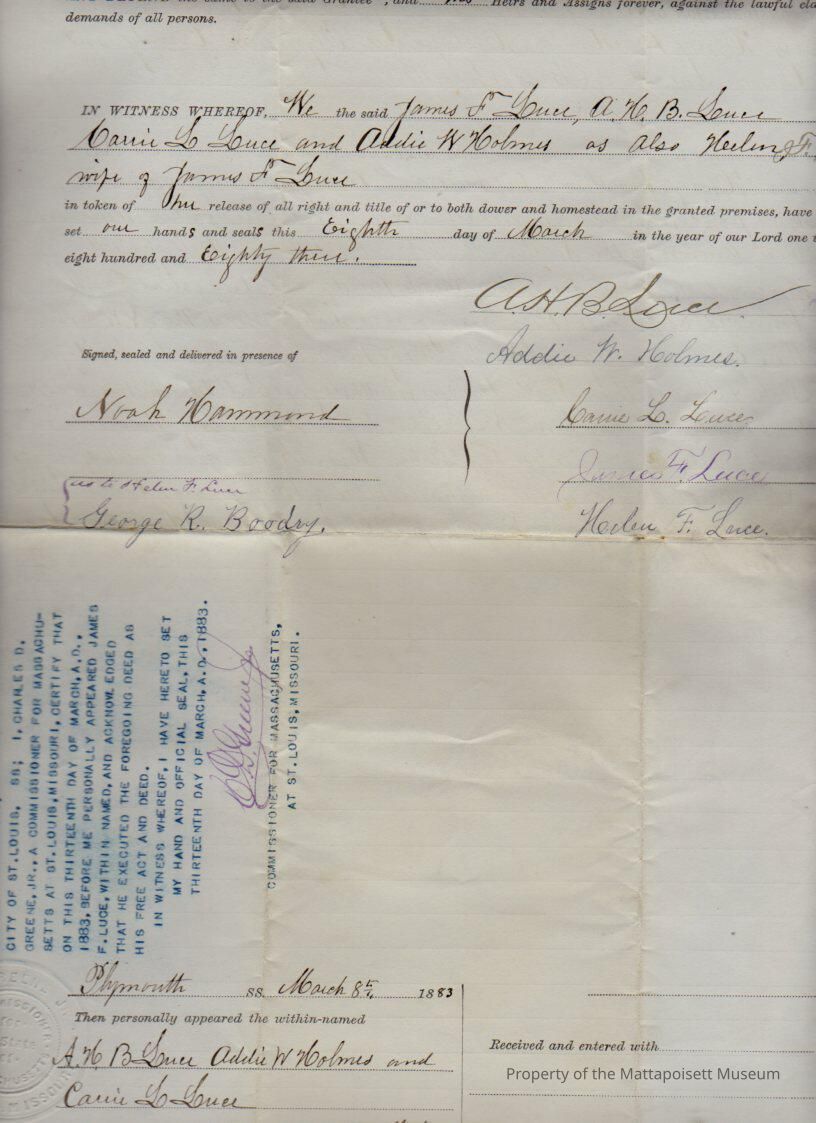 the same to the said Grantee , and his Heirs and Assigns forever, against the lawful
demands of all persons.
IN WITNESS WHEREOF, We the said James F Luce, A. H. B. Luce
Carrie L Luce and Addie W Holmes as also Helen F.
wife of James F Luce
in token of her release of all right and title of or to both dower and homestead in the granted premises, have
set our hands and seals this Eighth day of March in the year of our Lord one
eight hundred and Eighty three.
A. H. B. Luce
Signed, sealed and delivered in presence of
Addie W. Holmes.
Noah Hammond
Carrie L. Luce
James F. Luce
as to Helen F. Luce
George R. Boodry.
Helen F. Luce.
CITY OF ST.LOUIS, SS; I, CHARLES D.
GREENE, JR., A COMMISSIONER FOR MASSACHU-
SETTS AT ST.LOUIS, MISSOURI, CERTIFY THAT
ON THIS THIRTEENTH DAY OF MARCH, A.D.,
1883, BEFORE ME PERSONALLY APPEARED JAMES
F. LUCE, WITHIN NAMED, AND ACKNOWLEDGED
THAT HE EXECUTED THE FOREGOING DEED AS
HIS FREE ACT AND DEED.
IN WITNESS WHEREOF, I HAVE HERETO SET
MY HAND AND OFFICIAL SEAL, THIS
THIRTEENTH DAY OF MARCH, A.D., 1883.
C D Greene Jr
COMMISSIONER FOR MASSACHUSETTS,
AT ST.LOUIS, MISSOURI.
Plymouth ss. March 8th 1883
Then personally appeared the within-named
A. H. B Luce Addie W Holmes and
Carrie L Luce
Received and entered with
Property of the Mattapoisett Museum